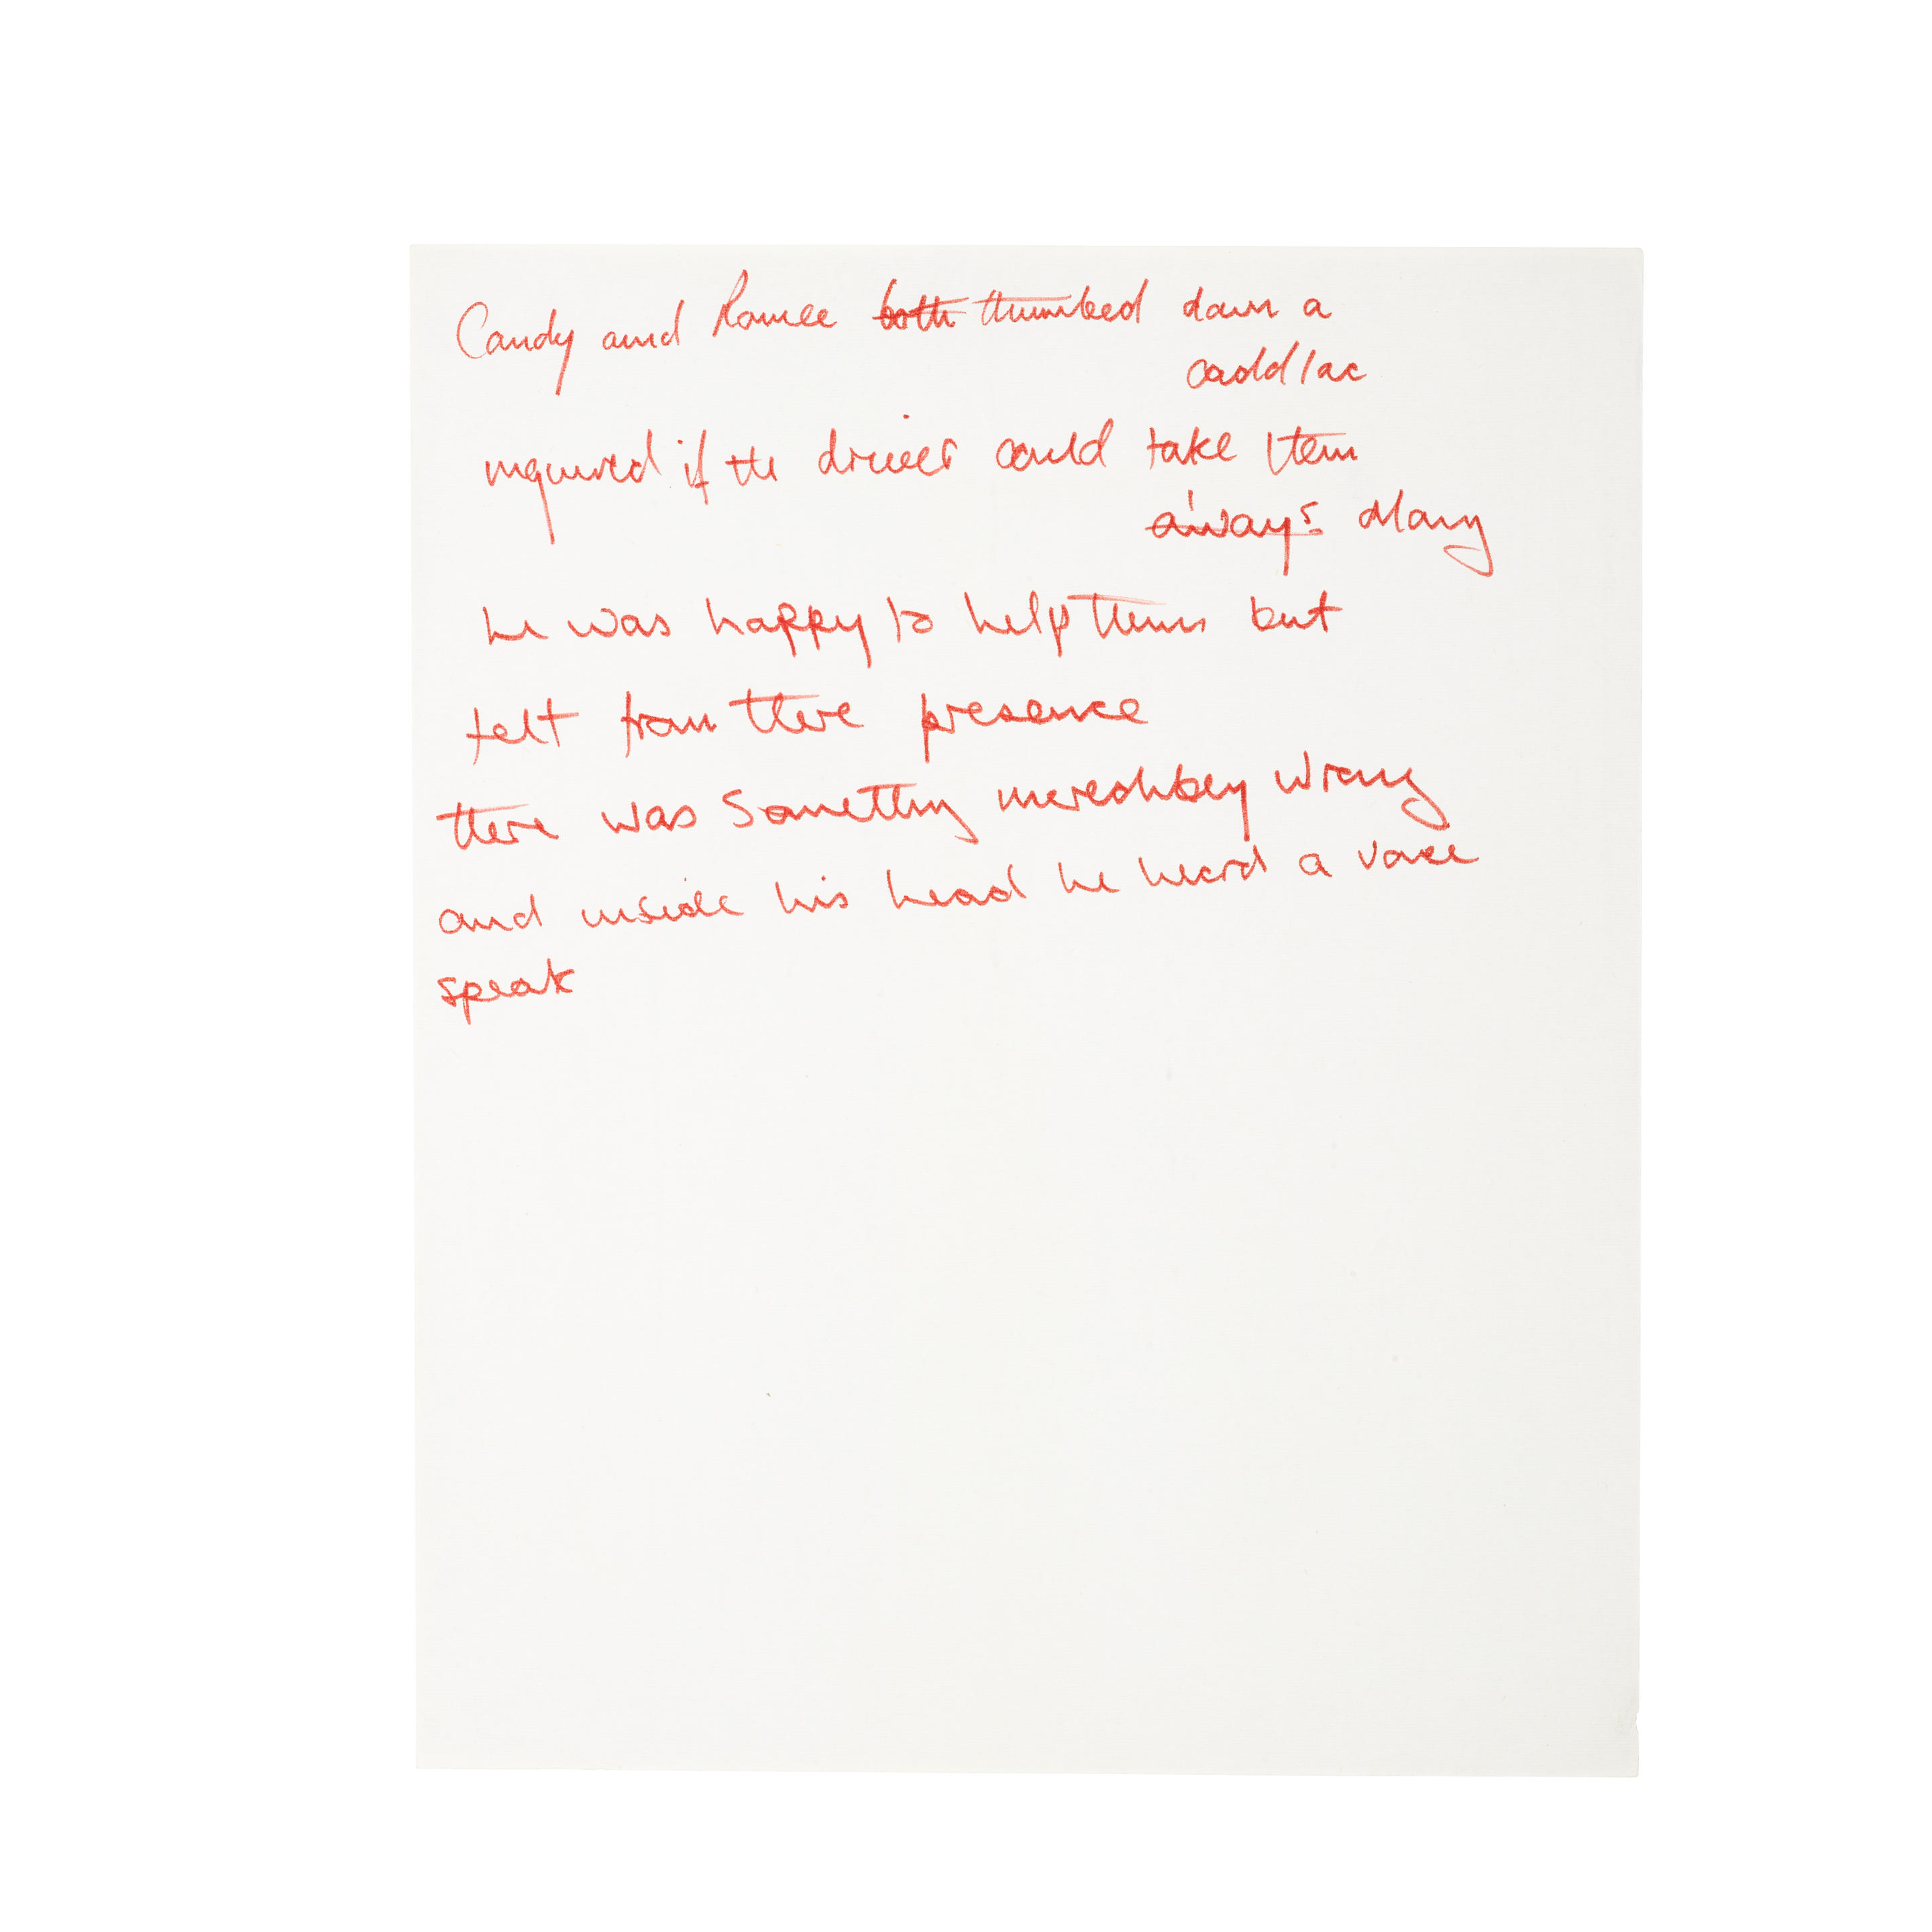 Candy and Ronnie both thumbed down a
caddlac
inquired if the driver could take them
always along
he was happy to help them but
felt from there presence
there was something incredibley wrong
and inside his head he heard a voice
speak